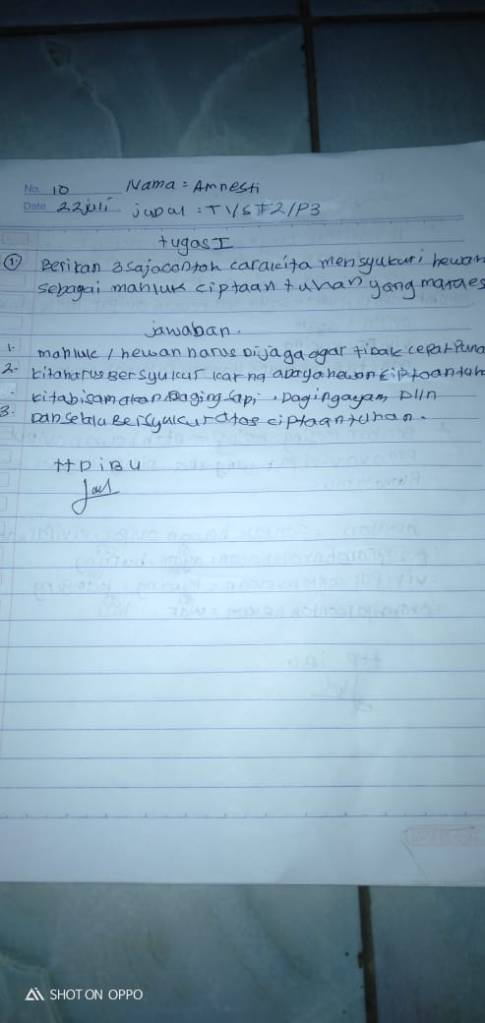 No. 10 Nama = Amnesti
Date 22 juli judul : T1/ST2/P3
tugas I
① Berikan 3 saja contoh cara kita mensyukuri hewan
sebagai mahluk ciptaan tuhan yang
jawaban.
1. mahluk / hewan harus Dijaga agar tidak cepat
2. kita harus Bersyukur karna adaya hewan Ciptaan
. kita bisa makan Daging sapi, Daging ayam, Dlln
3. Dan selalu Bersyukur atas ciptaan tuhan.
TTD iBU
SHOT ON OPPO